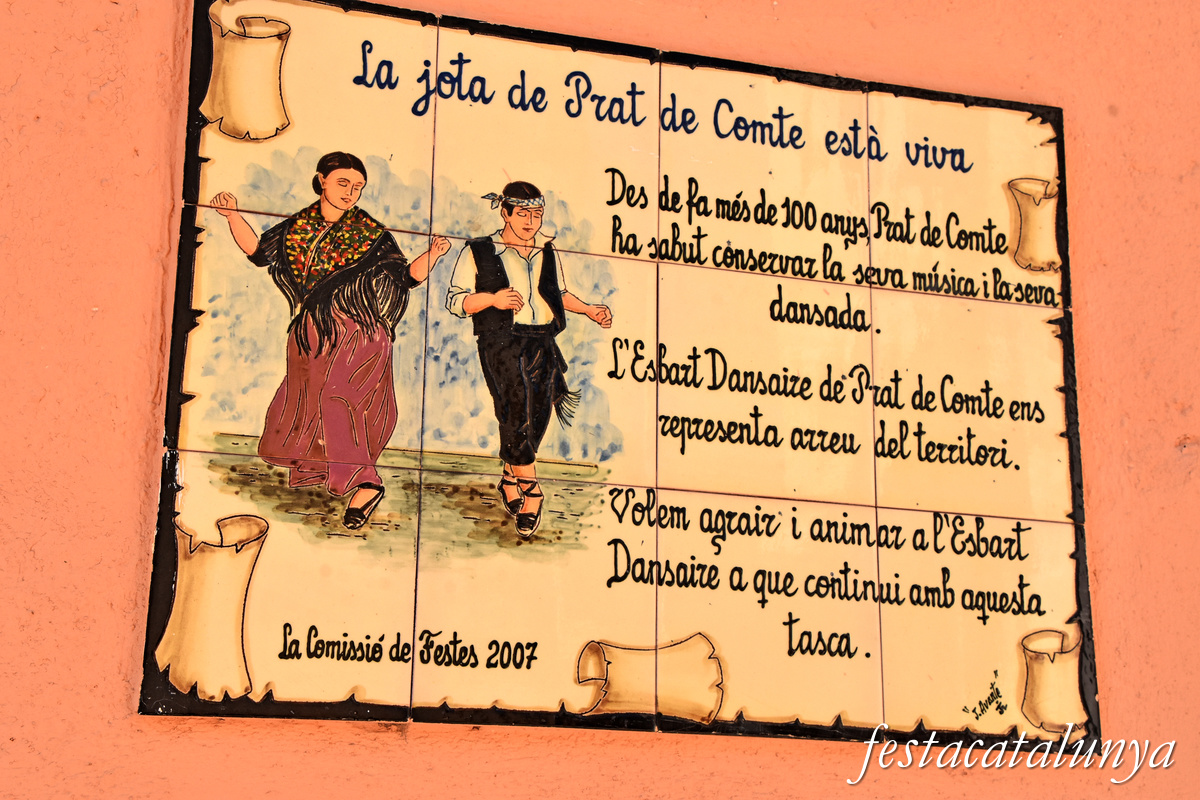 La jota de Prat de Comte està viva
Des de fa més de 100 anys, Prat de Comte
ha sabut conservar la seva música i la seva
dansada.
L'Esbart Dansaire de Prat de Comte ens
representa arreu del territori.
Volem agrair i animar a l'Esbart
Dansaire a que continui amb aquesta
tasca.
La Comissió de Festes 2007
"J. Avante"
festacatalunya